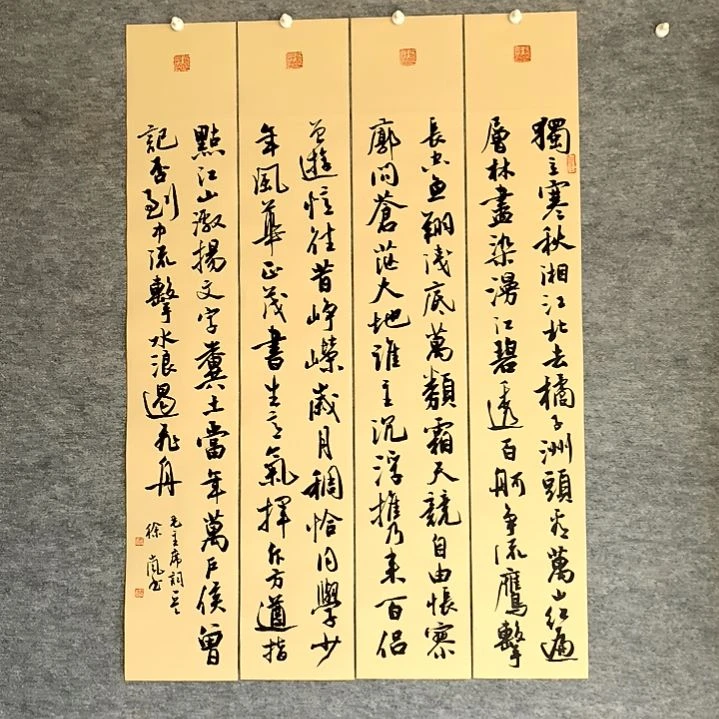 獨立寒秋湘江北去橘子洲頭看萬山紅遍
層林盡染漫江碧透百舸爭流鷹擊
長空魚翔淺底萬類霜天競自由悵寥
廓問蒼茫大地誰主沉浮携來百侣
曾遊憶往昔崢嶸歲月稠恰同學少
年風華正茂書生意氣揮斥方遒指
點江山激揚文字糞土當年萬戶侯曾
記否到中流擊水浪遏飛舟
毛主席詞一首
徐嵐書